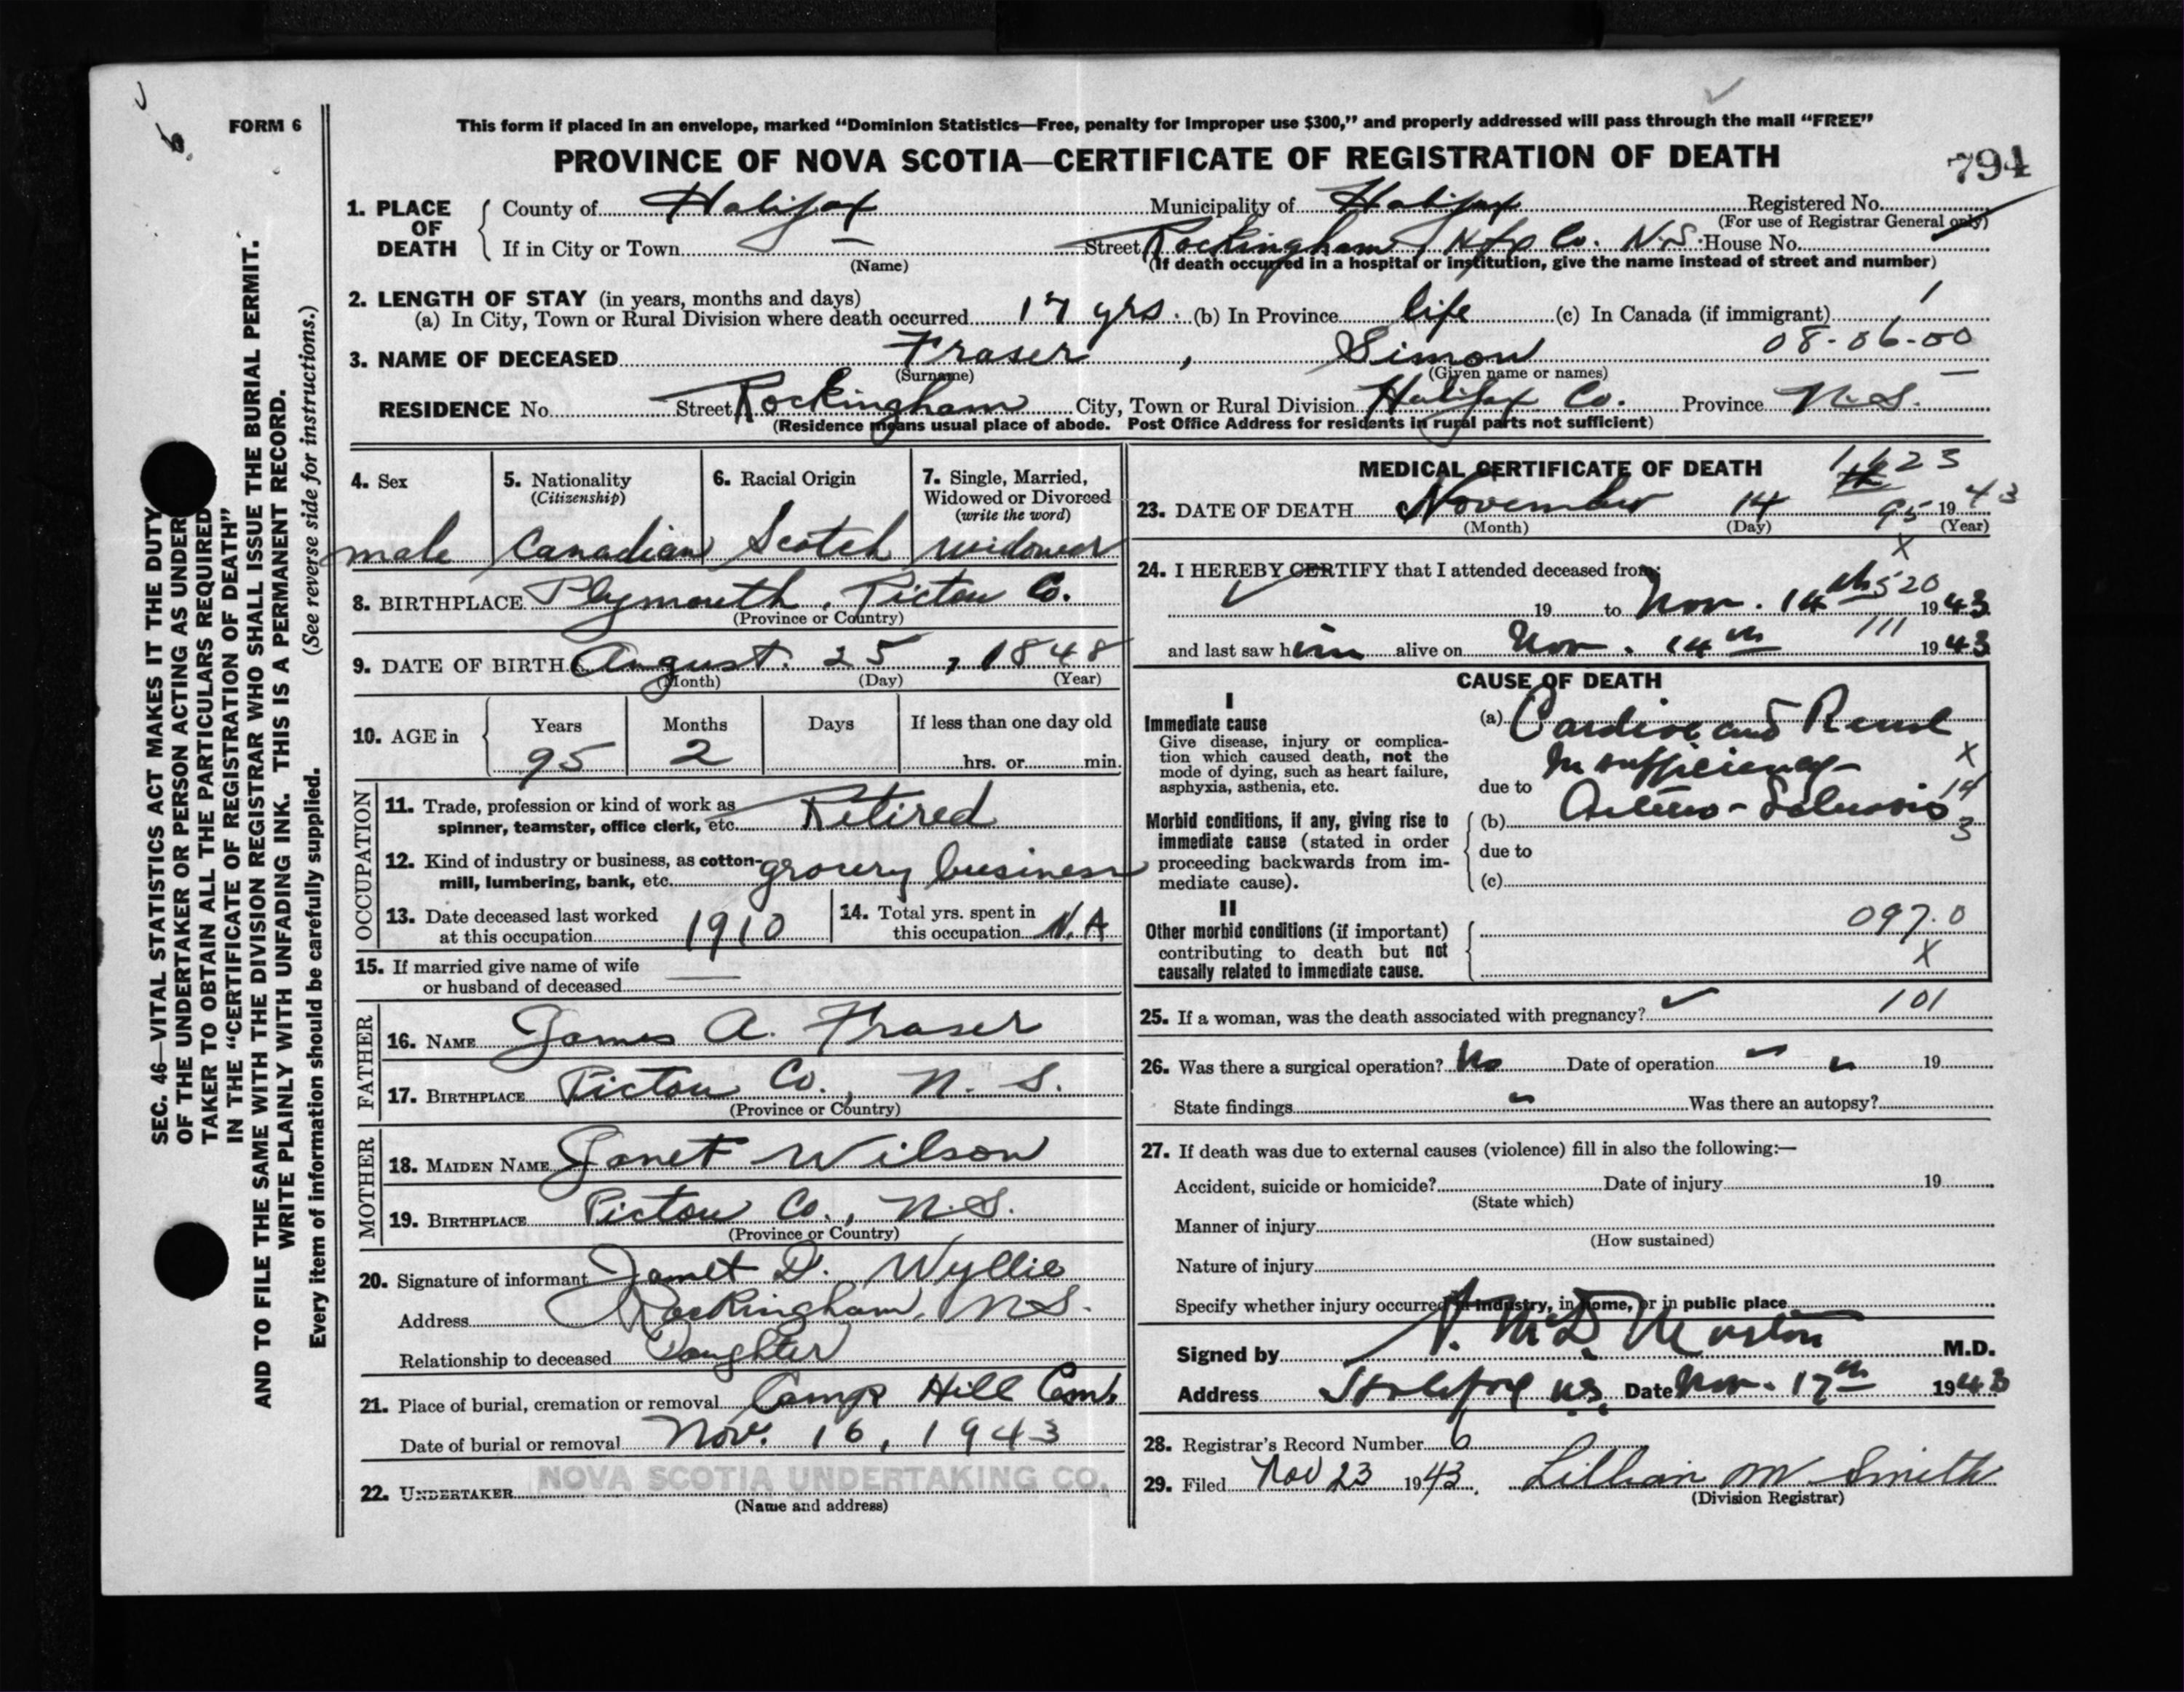 FORM 6
This form if placed in an envelope, marked “Dominion Statistics—Free, penalty for improper use $300,” and properly addressed will pass through the mail “FREE”
PROVINCE OF NOVA SCOTIA—CERTIFICATE OF REGISTRATION OF DEATH
794
1. PLACE OF DEATH
County of Halifax Municipality of Halifax Registered No.
(For use of Registrar General only)
If in City or Town — Street Rockingham Hfx Co. N.S. House No.
(Name) (If death occurred in a hospital or institution, give the name instead of street and number)
2. LENGTH OF STAY (in years, months and days)
(a) In City, Town or Rural Division where death occurred 17 yrs. (b) In Province life (c) In Canada (if immigrant)
08-06-00
3. NAME OF DECEASED Fraser, Simon
(Surname) (Given name or names)
RESIDENCE No. Street Rockingham City, Town or Rural Division Halifax Co. Province N.S.
(Residence means usual place of abode. Post Office Address for residents in rural parts not sufficient)
4. Sex
male
5. Nationality
(Citizenship)
Canadian
6. Racial Origin
Scotch
7. Single, Married,
Widowed or Divorced
(write the word)
widower
8. BIRTHPLACE Plymouth, Pictou Co.
(Province or Country)
9. DATE OF BIRTH August 25, 1848
(Month) (Day) (Year)
10. AGE in
Years Months Days If less than one day old
95 2 hrs. or min.
OCCUPATION
11. Trade, profession or kind of work as
spinner, teamster, office clerk, etc. Retired
12. Kind of industry or business, as cotton-
mill, lumbering, bank, etc. grocery business
13. Date deceased last worked
at this occupation 1910
14. Total yrs. spent in
this occupation N.A
15. If married give name of wife
or husband of deceased —
FATHER
16. NAME James A. Fraser
17. BIRTHPLACE Pictou Co., N. S.
(Province or Country)
MOTHER
18. MAIDEN NAME Janet Wilson
19. BIRTHPLACE Pictou Co., N.S.
(Province or Country)
20. Signature of informant Janet D. Wyllie
Address Rockingham, N.S.
Relationship to deceased Daughter
21. Place of burial, cremation or removal Camp Hill Cem.
Date of burial or removal Nov. 16, 1943
22. UNDERTAKER NOVA SCOTIA UNDERTAKING CO.
(Name and address)
MEDICAL CERTIFICATE OF DEATH
23. DATE OF DEATH November 14 th 1943
(Month) (Day) (Year)
95
X
24. I HEREBY CERTIFY that I attended deceased from:
19 to Nov. 14th 1943
520
and last saw him alive on Nov. 14th 1943
111
CAUSE OF DEATH
I
Immediate cause
Give disease, injury or complica-
tion which caused death, not the
mode of dying, such as heart failure,
asphyxia, asthenia, etc.
(a) Cardiac and Renal
Insufficiency
X
due to
14
Morbid conditions, if any, giving rise to
immediate cause (stated in order
proceeding backwards from im-
mediate cause).
(b) Arterio-Sclerosis
3
due to
(c)
II
Other morbid conditions (if important)
contributing to death but not
causally related to immediate cause.
097.0
X
25. If a woman, was the death associated with pregnancy?
101
26. Was there a surgical operation? No Date of operation 19
State findings Was there an autopsy?
27. If death was due to external causes (violence) fill in also the following:—
Accident, suicide or homicide? Date of injury 19
(State which)
Manner of injury
(How sustained)
Nature of injury
Specify whether injury occurred in industry, in home, or in public place
Signed by M.D.
Address Halifax N.S. Date Nov. 17th 1943
28. Registrar's Record Number 6
29. Filed Nov 23 1943. Lillian M Smith
(Division Registrar)
SEC. 46—VITAL STATISTICS ACT MAKES IT THE DUTY
OF THE UNDERTAKER OR PERSON ACTING AS UNDER
TAKER TO OBTAIN ALL THE PARTICULARS REQUIRED
IN THE “CERTIFICATE OF REGISTRATION OF DEATH”
AND TO FILE THE SAME WITH THE DIVISION REGISTRAR WHO SHALL ISSUE THE BURIAL PERMIT.
WRITE PLAINLY WITH UNFADING INK. THIS IS A PERMANENT RECORD.
Every item of information should be carefully supplied. (See reverse side for instructions.)